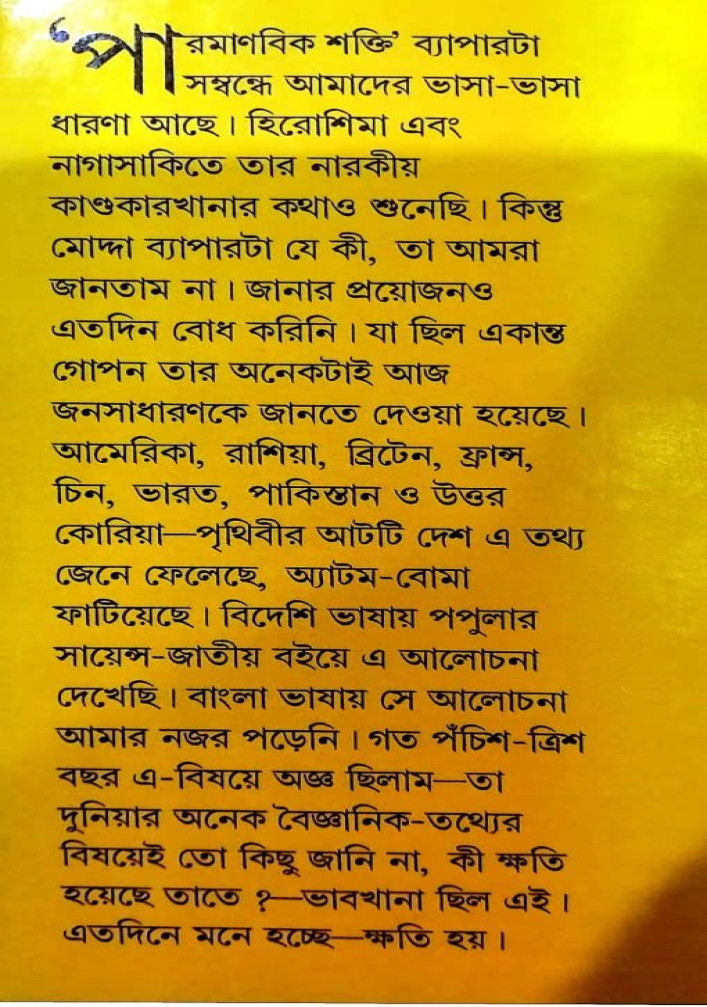 ‘পারমাণবিক শক্তি’ ব্যাপারটা
সম্বন্ধে আমাদের ভাসা-ভাসা
ধারণা আছে। হিরোশিমা এবং
নাগাসাকিতে তার নারকীয়
কাণ্ডকারখানার কথাও শুনেছি। কিন্তু
মোদ্দা ব্যাপারটা যে কী, তা আমরা
জানতাম না। জানার প্রয়োজনও
এতদিন বোধ করিনি। যা ছিল একান্ত
গোপন তার অনেকটাই আজ
জনসাধারণকে জানতে দেওয়া হয়েছে।
আমেরিকা, রাশিয়া, ব্রিটেন, ফ্রান্স,
চিন, ভারত, পাকিস্তান ও উত্তর
কোরিয়া—পৃথিবীর আটটি দেশ এ তথ্য
জেনে ফেলেছে, অ্যাটম-বোমা
ফাটিয়েছে। বিদেশি ভাষায় পপুলার
সায়েন্স-জাতীয় বইয়ে এ আলোচনা
দেখেছি। বাংলা ভাষায় সে আলোচনা
আমার নজর পড়েনি। গত পঁচিশ-ত্রিশ
বছর এ-বিষয়ে অজ্ঞ ছিলাম—তা
দুনিয়ার অনেক বৈজ্ঞানিক-তথ্যের
বিষয়েই তো কিছু জানি না, কী ক্ষতি
হয়েছে তাতে ?—ভাবখানা ছিল এই।
এতদিনে মনে হচ্ছে—ক্ষতি হয়।